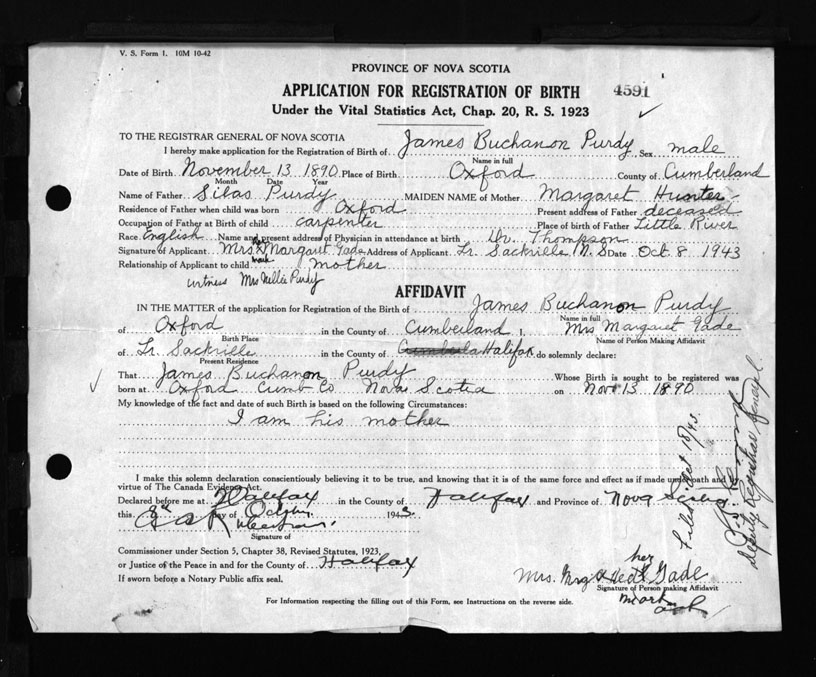 V. S. Form 1. 10M 10-42
PROVINCE OF NOVA SCOTIA
APPLICATION FOR REGISTRATION OF BIRTH 4591
Under the Vital Statistics Act, Chap. 20, R. S. 1923
TO THE REGISTRAR GENERAL OF NOVA SCOTIA
I hereby make application for the Registration of Birth of James Buchanon Purdy Sex male
Name in full
Date of Birth November 13 1890 Place of Birth Oxford County of Cumberland
Month Date Year
Name of Father Silas Purdy MAIDEN NAME of Mother Margaret Hunter
Residence of Father when child was born Oxford Present address of Father deceased
Occupation of Father at Birth of child carpenter Place of birth of Father Little River
Race English Name and present address of Physician in attendance at birth Dr. Thompson
Signature of Applicant Mrs her x mark Margaret Gade Address of Applicant Lr. Sackville N. S Date Oct 8 1943
Relationship of Applicant to child mother
witness Mrs Nellie Purdy
AFFIDAVIT
IN THE MATTER of the application for Registration of the Birth of James Buchanon Purdy
Name in full
of Oxford in the County of Cumberland I, Mrs Margaret Gade
Birth Place Name of Person Making Affidavit
of Lr. Sackville in the County of Halifax do solemnly declare:
Present Residence
That James Buchanon Purdy Whose Birth is sought to be registered was
born at Oxford Cumb Co Nova Scotia on Nov. 13 1890
My knowledge of the fact and date of such Birth is based on the following Circumstances:
I am his mother
I make this solemn declaration conscientiously believing it to be true, and knowing that it is of the same force and effect as if made under oath and by
virtue of The Canada Evidence Act.
Declared before me at Halifax in the County of Halifax and Province of Nova Scotia
this 8th day of October 1943.
Signature of
Commissioner under Section 5, Chapter 38, Revised Statutes, 1923,
or Justice of the Peace in and for the County of Halifax
If sworn before a Notary Public affix seal.
her
Mrs. x Gade
Signature of Person making Affidavit
mark
For Information respecting the filling out of this Form, see Instructions on the reverse side.
Filed Oct 18/43.
Deputy Registrar General